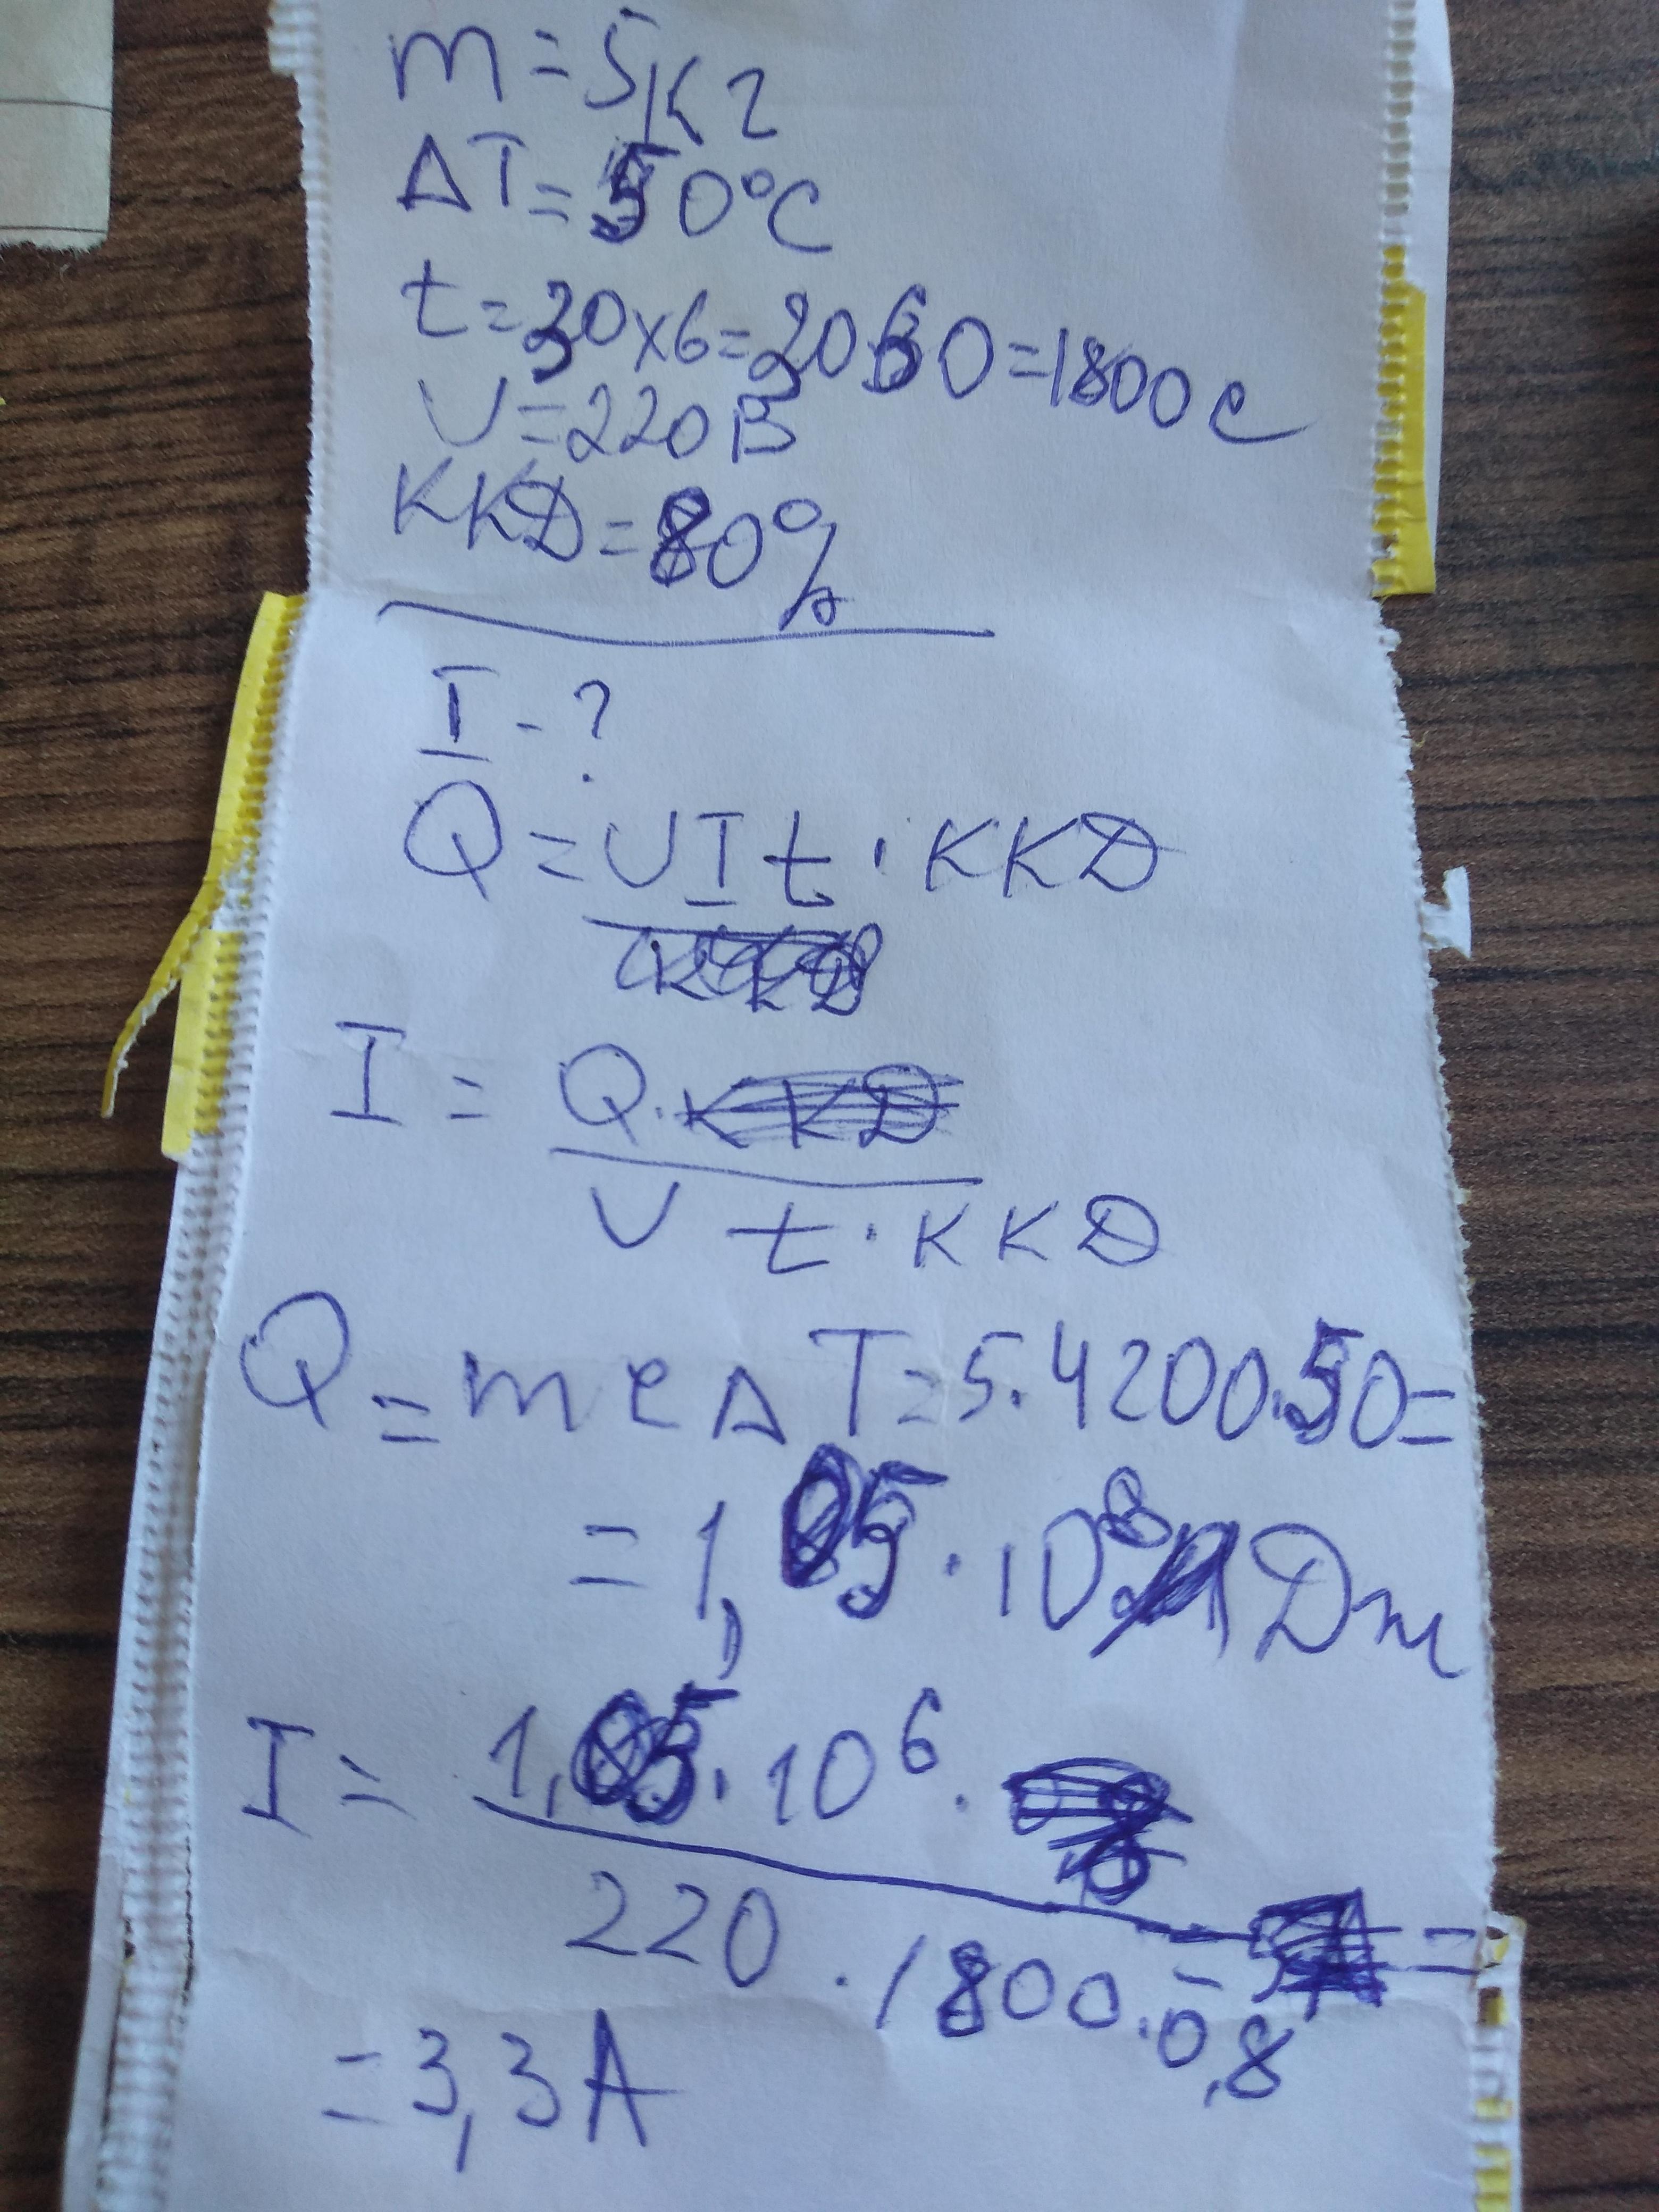 m = 5 кг
ΔT = 50°C
t = 30x6 = 30 60 = 1800 c
U = 220 B
KKD = 80%
I - ?
Q = UIt · KKD
I = Q ·
U t · KKD
Q = mcΔT = 5 · 4200 · 50 =
= 1,05 · 10⁶ Dж
I = 1,05 · 10⁶ ·
220 · 1800 · 0,8 =
= 3,3 A